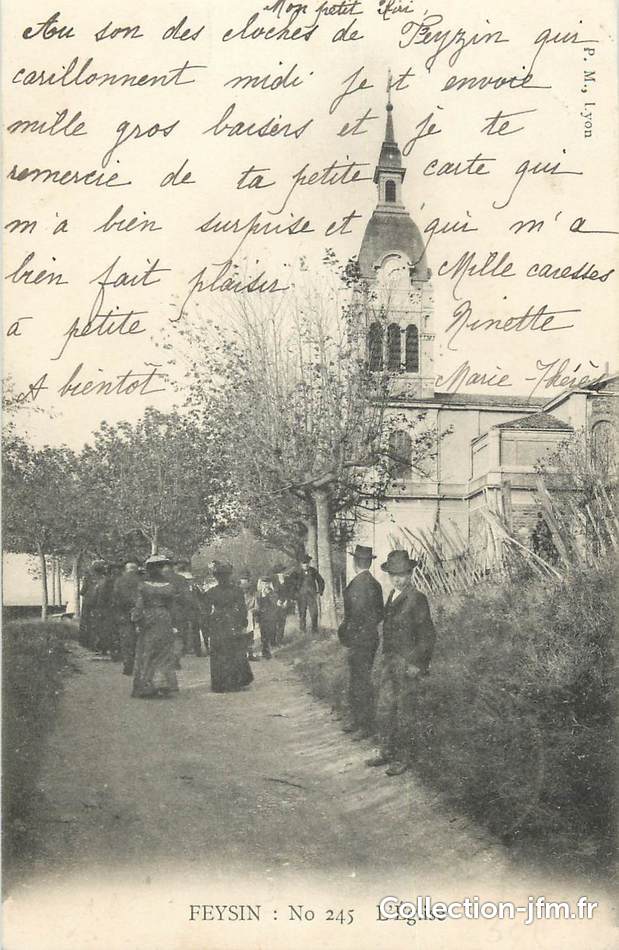 Mon petit Riri
Au son des cloches de Peyzin qui
carillonnent midi je t'envoie
mille gros baisers et je te
remercie de ta petite carte qui
m'a bien surprise et qui m'a
bien fait plaisir Mille caresses
à petite Ninette
A bientôt Marie-Thérèse
P. M., Lyon
FEYSIN : No 245 L'Église
Collection-jfm.fr